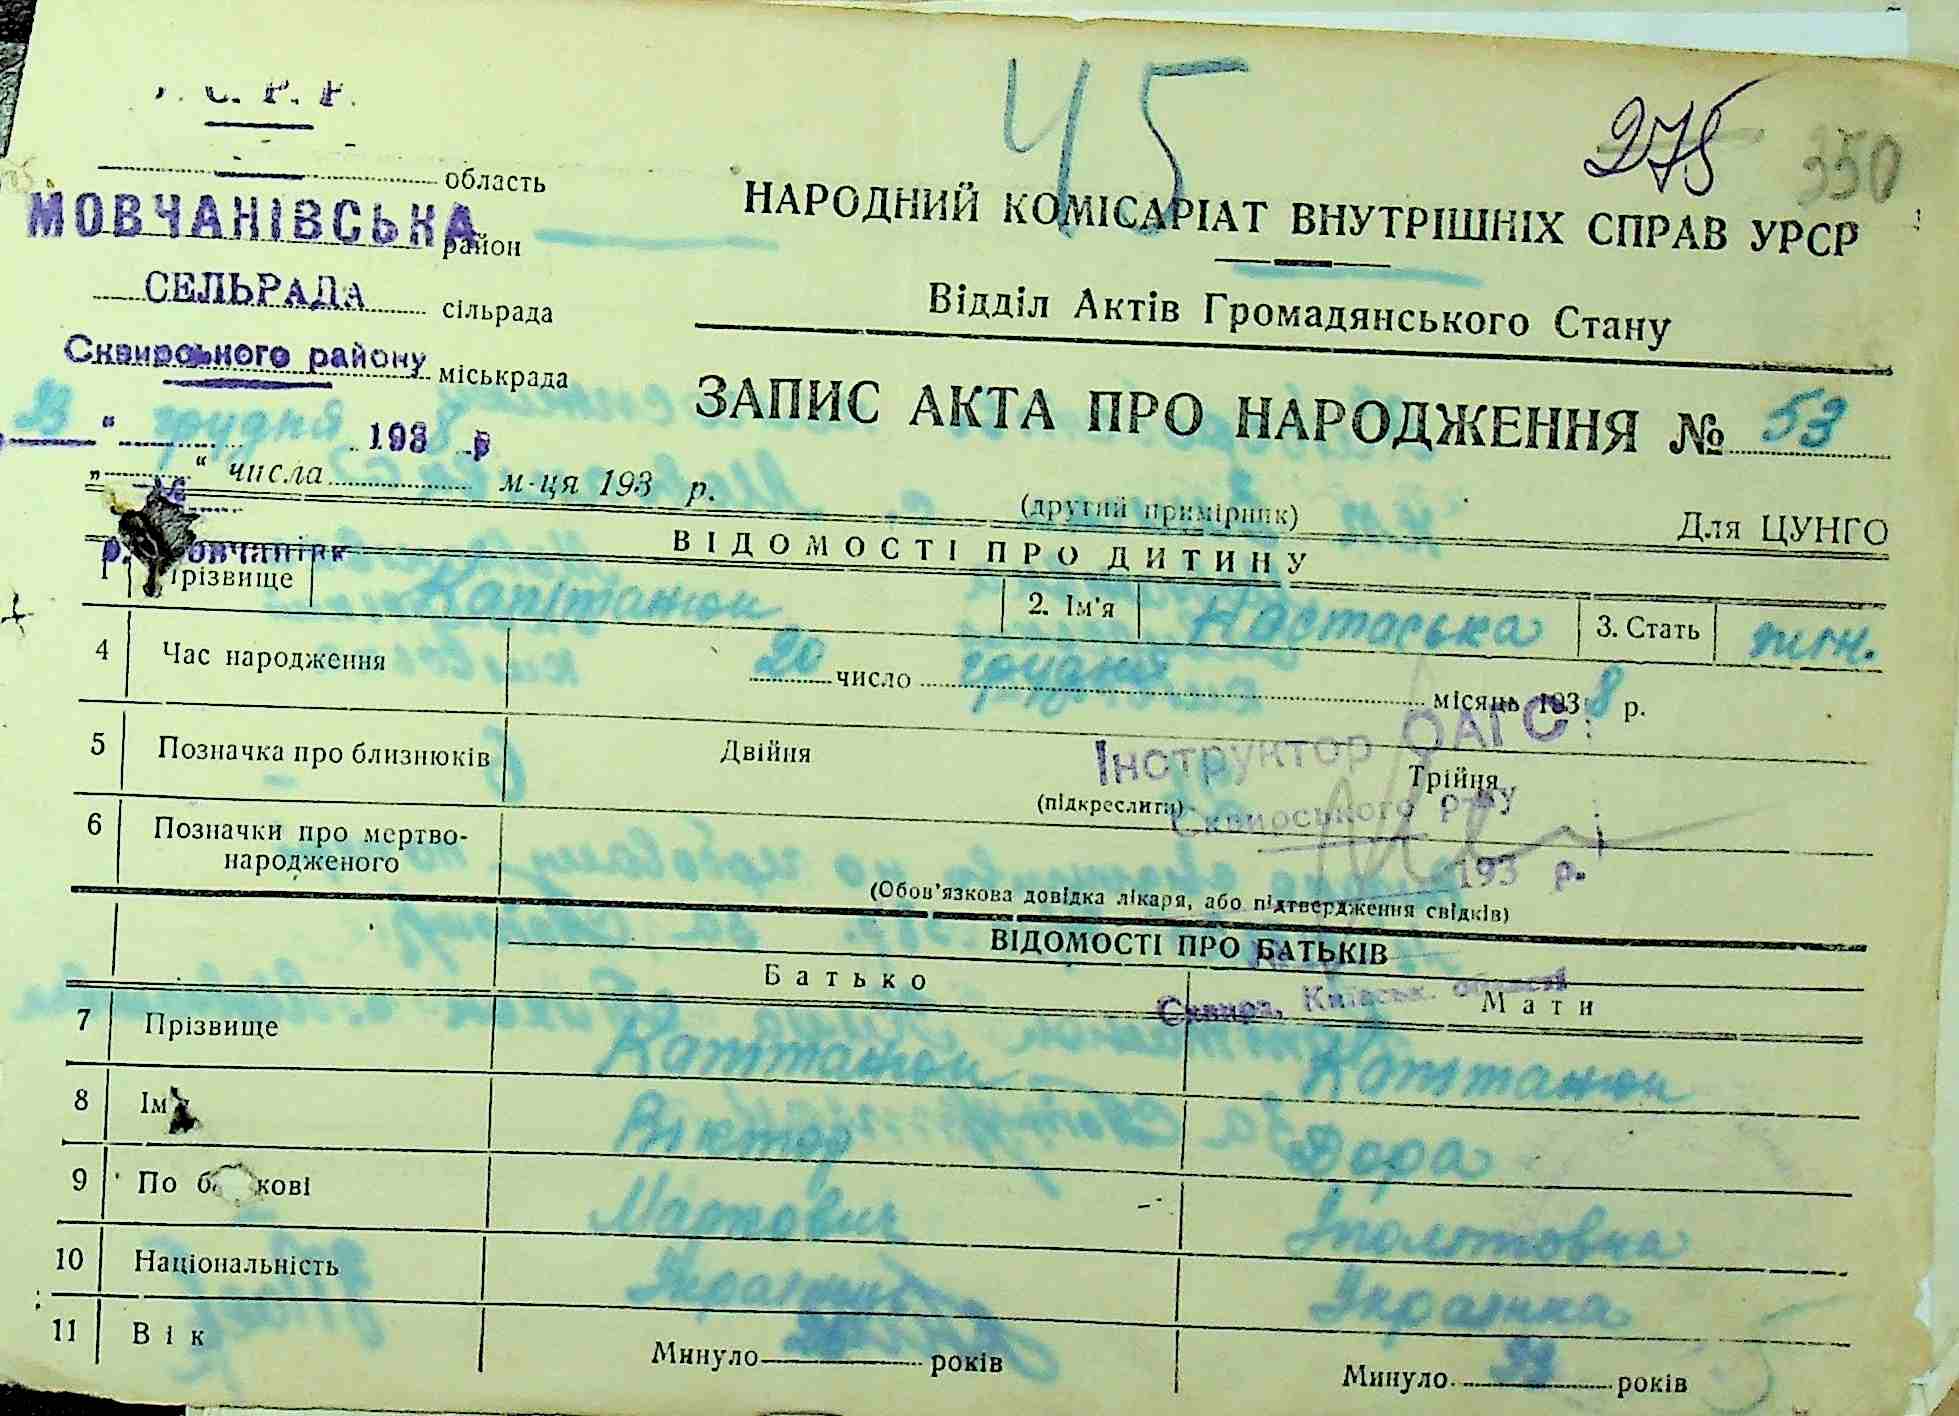 С. Р. Р.
45
275
350
область
МОВЧАНІВСЬКА
район
НАРОДНИЙ КОМІСАРІАТ ВНУТРІШНІХ СПРАВ УРСР
СЕЛЬРАДА сільрада
Відділ Актів Громадянського Стану
Сквирського району міськрада
ЗАПИС АКТА ПРО НАРОДЖЕННЯ № 53
23 " грудня 1938 р
„ “ числа м-ця 193 р.
(другий примірник)
Для ЦУНГО
ВІДОМОСТІ ПРО ДИТИНУ
1 Прізвище Капітанюк 2. Ім'я Настаська 3. Стать жін.
4 Час народження 20 число грудня місяць 1938 р.
5 Позначка про близнюків Двійня Трійня
(підкреслити)
Інструктор ОАГС
Сквирського РВ
193 р.
6 Позначки про мертво-
народженого
(Обов'язкова довідка лікаря, або підтвердження свідків)
ВІДОМОСТІ ПРО БАТЬКІВ
Батько Мати
Сквира, Київськ. області
7 Прізвище Капітанюк Капітанюк
8 Ім'я Віктор Дора
9 По батькові Мартович Іполотовна
10 Національність Українець Українка
11 Вік Минуло років Минуло 33 років